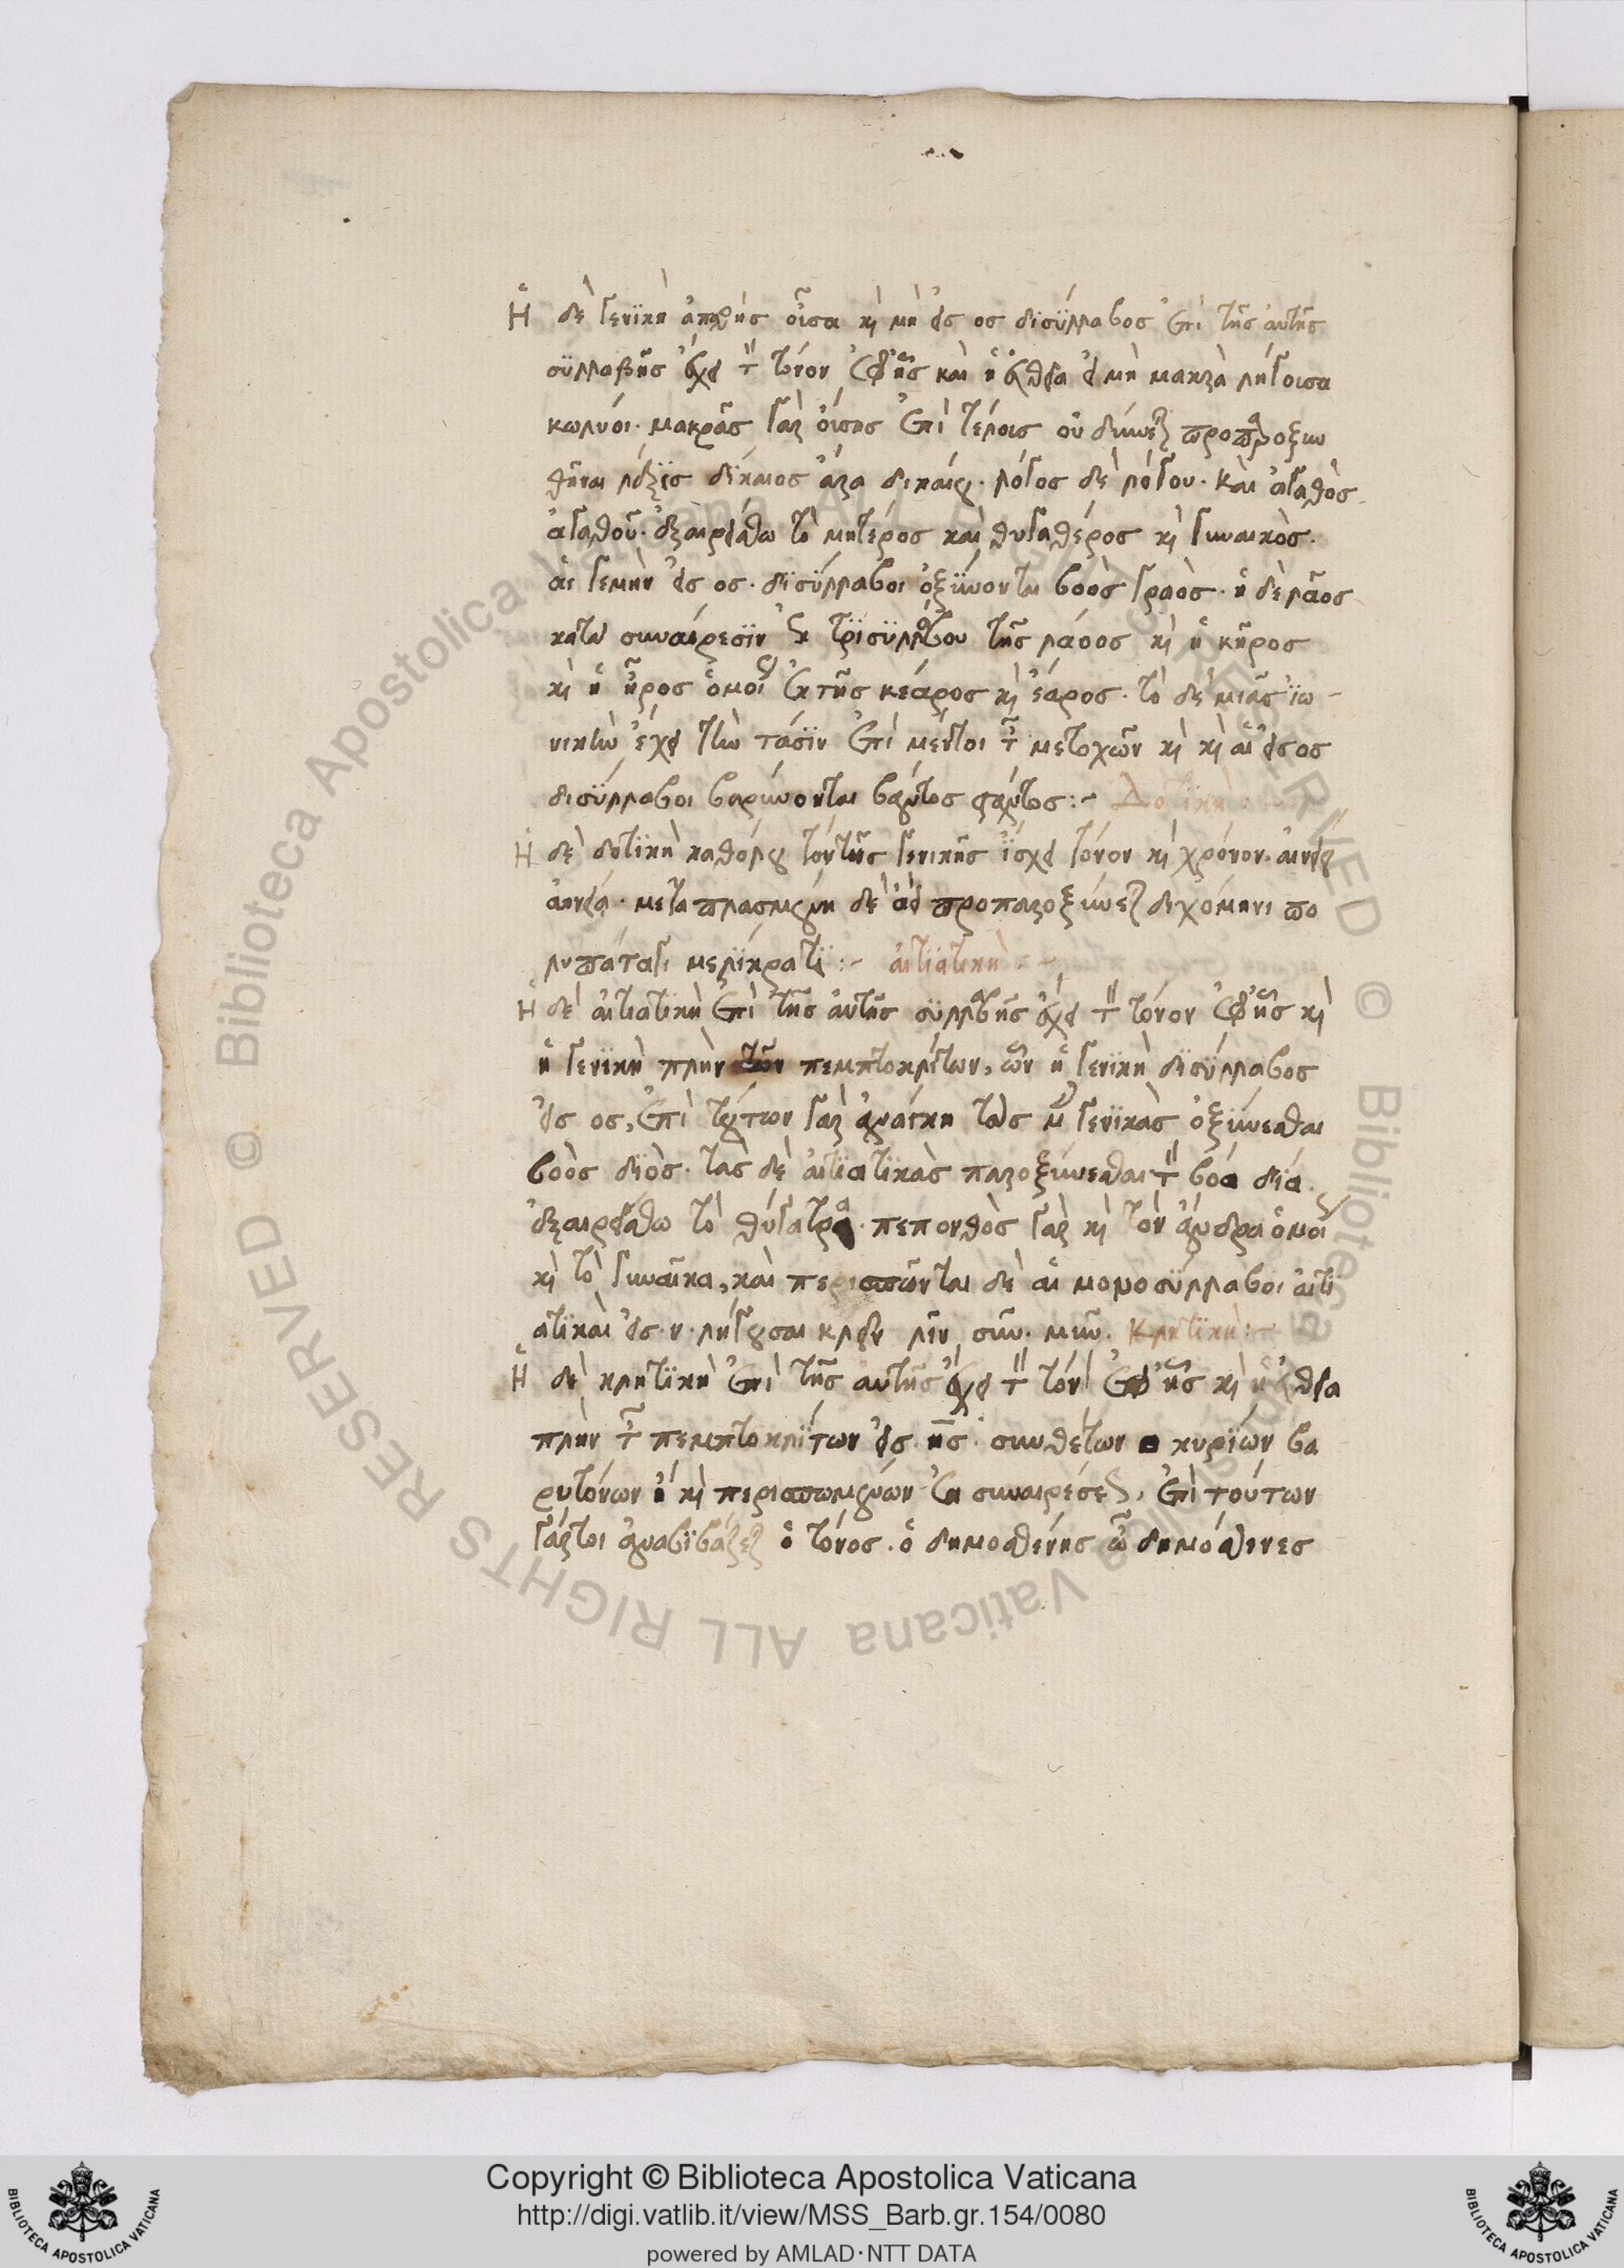 Ἡ δὲ γενϊκὴ ἁπλῆς οὖσα κὶ μὴ εἰς ος δϊσΰλλαβος ἐπὶ τῆς αὐτῆς
σϋλλαβῆς ἔχει τ τόνον ἐφ ἧς καὶ ἡ εὐθεῖα εἰ μὴ μακρὰ λήγουσα
κωλύοι. μακρᾶς γὰρ οὔσης ἐπὶ τέλους οὐ δύναται προπαροξυν
θῆναι λέξϊς δίκαιος ἄρα δικαίου. λόγος δὲ λόγου. καὶ ἀγαθὸς
ἀγαθοῦ. ἐξαιρείσθω τὸ μητέρος καὶ θυγατέρος κὶ γυναικὸς.
αἱ γεμὴν εἰς ος. δϊσΰλλαβοι ὀξΰνονται βοὸς γραὸς. ἡ δὲ λᾶος
κατὰ συναίρεσϊν ἐκ τρϊσϋλλάβου τῆς λάαος κὶ ἡ κῆρος
κὶ ἡ ἦρος ὁμοί ἐκ τῆς κεάρος κὶ ἐάρος. τὸ δὲ μιᾶς ἰω-
νικὴν ἔχει τὴν τάσϊν ἐπὶ μέντοι τ μετοχῶν κὶ κὶ αἱ εἰς ος
δισΰλλαβοι βαρύνονται βάντος φάντος :- Δοτϊκὴ:
Ἡ δὲ δοτϊκὴ καθόλου τὸν τῆς γενικῆς ἴσχει τόνον κὶ χρόνον. αἰνείου
αἰνείᾳ. μεταπλασμένη δὲ ἀεὶ προπαροξύνεται διχόμηνι πο
λυπάταγι μελΐκρατϊ :- αἰτϊατικὴ :-
Ἡ δὲ αἰτιατϊκὴ ἐπὶ τῆς αὐτῆς σϋλλαβῆς ἔχει τ τόνον ἐφ ἧς κὶ
ἡ γενϊκὴ πλὴν τῶν πεμπτοκλίτων, ὧν ἡ γενϊκὴ δϊσΰλλαβος
εἰς ος, ἐπὶ τούτων γὰρ ἀνάγκη τὰς μ γενϊκὰς ὀξύνεσθαι
βοὸς δϊὸς. τὰς δὲ αἰτϊατϊκὰς παροξύνεσθαι τ βόα δία.
ἐξαιρείσθω τὸ θύγατρα. πεπονθὸς γὰρ κὶ τὸν ἄνδρα ὁμοί
κὶ τὸ γυναῖκα, καὶ περισπῶνται δὲ αἱ μονοσΰλλαβοι αἰτϊ
ατϊκαὶ εἰς. ν. λήγουσαι κλεῖν λῖν σῦν. μῦν. Κλητϊκὴ :-
Ἡ δὲ κλητϊκὴ ἐπὶ τῆς αὐτῆς ἔχει τ τόν ἐφ ἧς κὶ ἡ εὐθεῖα
πλὴν τ πεμπτοκλίτων εἰς. ης. συνθέτων κυρϊων βα
ρυτόνων ἢ κὶ περισπωμένων ἐκ συναιρέσεως, ἐπὶ τούτων
γάρτοι ἀναβϊβάζεται ὁ τόνος. ὁ δημοσθένης ὦ δημόσθενες
Copyright © Biblioteca Apostolica Vaticana
http://digi.vatlib.it/view/MSS_Barb.gr.154/0080
powered by AMLAD·NTT DATA
BIBLIOTECA APOSTOLICA VATICANA
BIBLIOTECA APOSTOLICA VATICANA
© Biblioteca Apostolica Vaticana ALL RIGHTS RESERVED